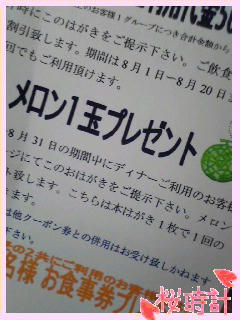 のお客様1グループにつき合計金額から
時にこのはがきをご提示下さい。ご飲食
割引致します。期間は8月1日~8月20日
回でもご利用頂けます。
メロン1玉プレゼント
8月31日の期間中にディナーご利用のお客様
ージにてこのおはがきをご提示下さい。メロン
ト致します。こちらは本はがき1枚で1回の
きます。
は他クーポン券との併用はお受け致しかねます
下さい。
ご利用のお客
名様 お食事券プ
桜時計